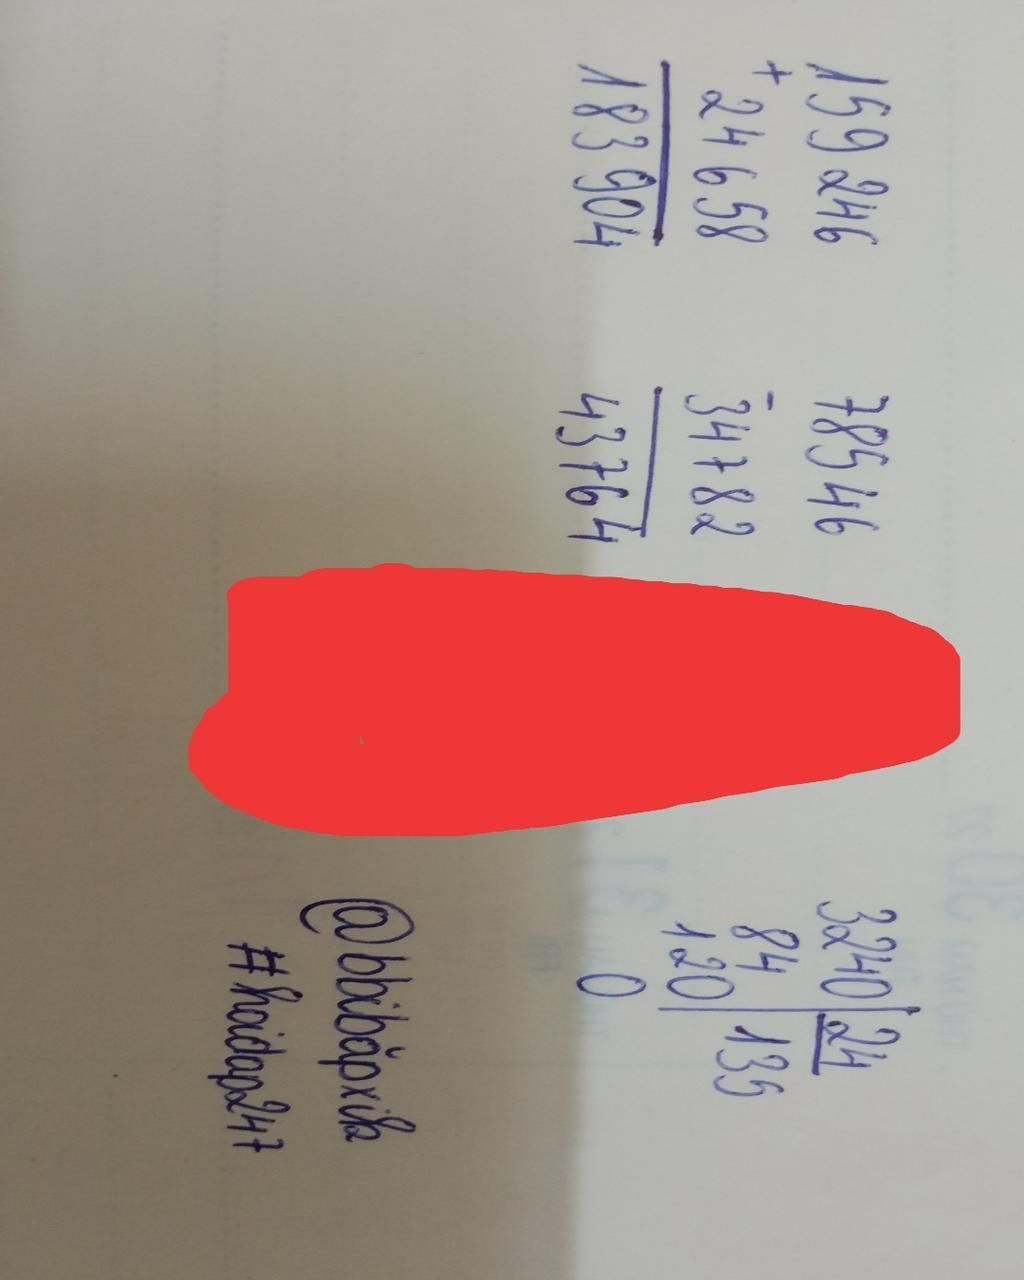 159 246
+
24 658
183 904
78546
-
34782
43764
3240 24
84 135
120
0
@bbibăpxik
#hoidap247